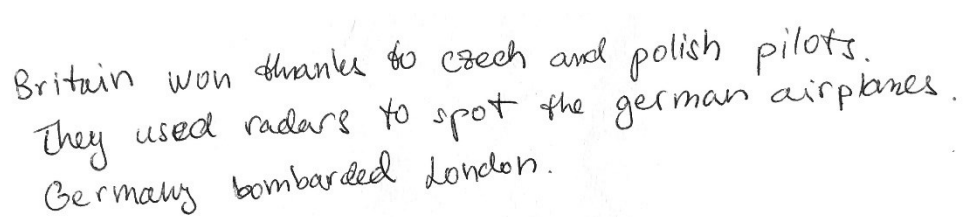 Britain won thanks to czech and polish pilots.
They used radars to spot the german airplanes.
Germany bombarded London.